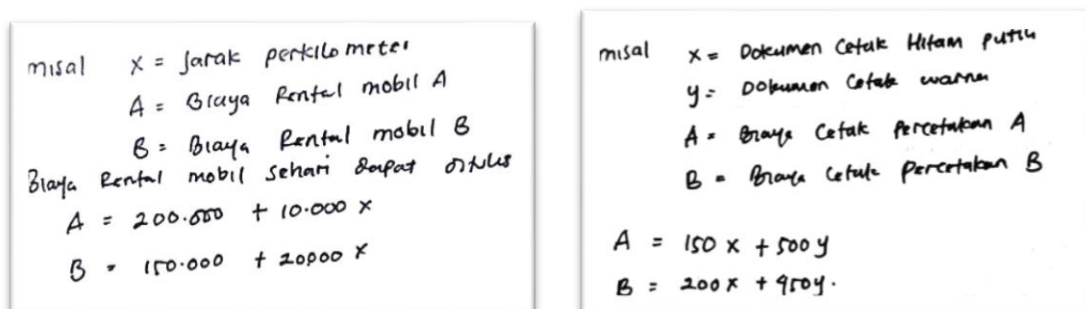 misal x = Jarak perkilometer
A = Biaya Rental mobil A
B = Biaya Rental mobil B
Biaya Rental mobil sehari dapat ditulis
A = 200.000 + 10.000 x
B = 150.000 + 20000 x
misal x = Dokumen Cetak Hitam putih
y = Dokumen Cetak warna
A = Biaya Cetak Percetakan A
B = Biaya Cetak Percetakan B
A = 150 x + 500 y
B = 200 x + 450 y.